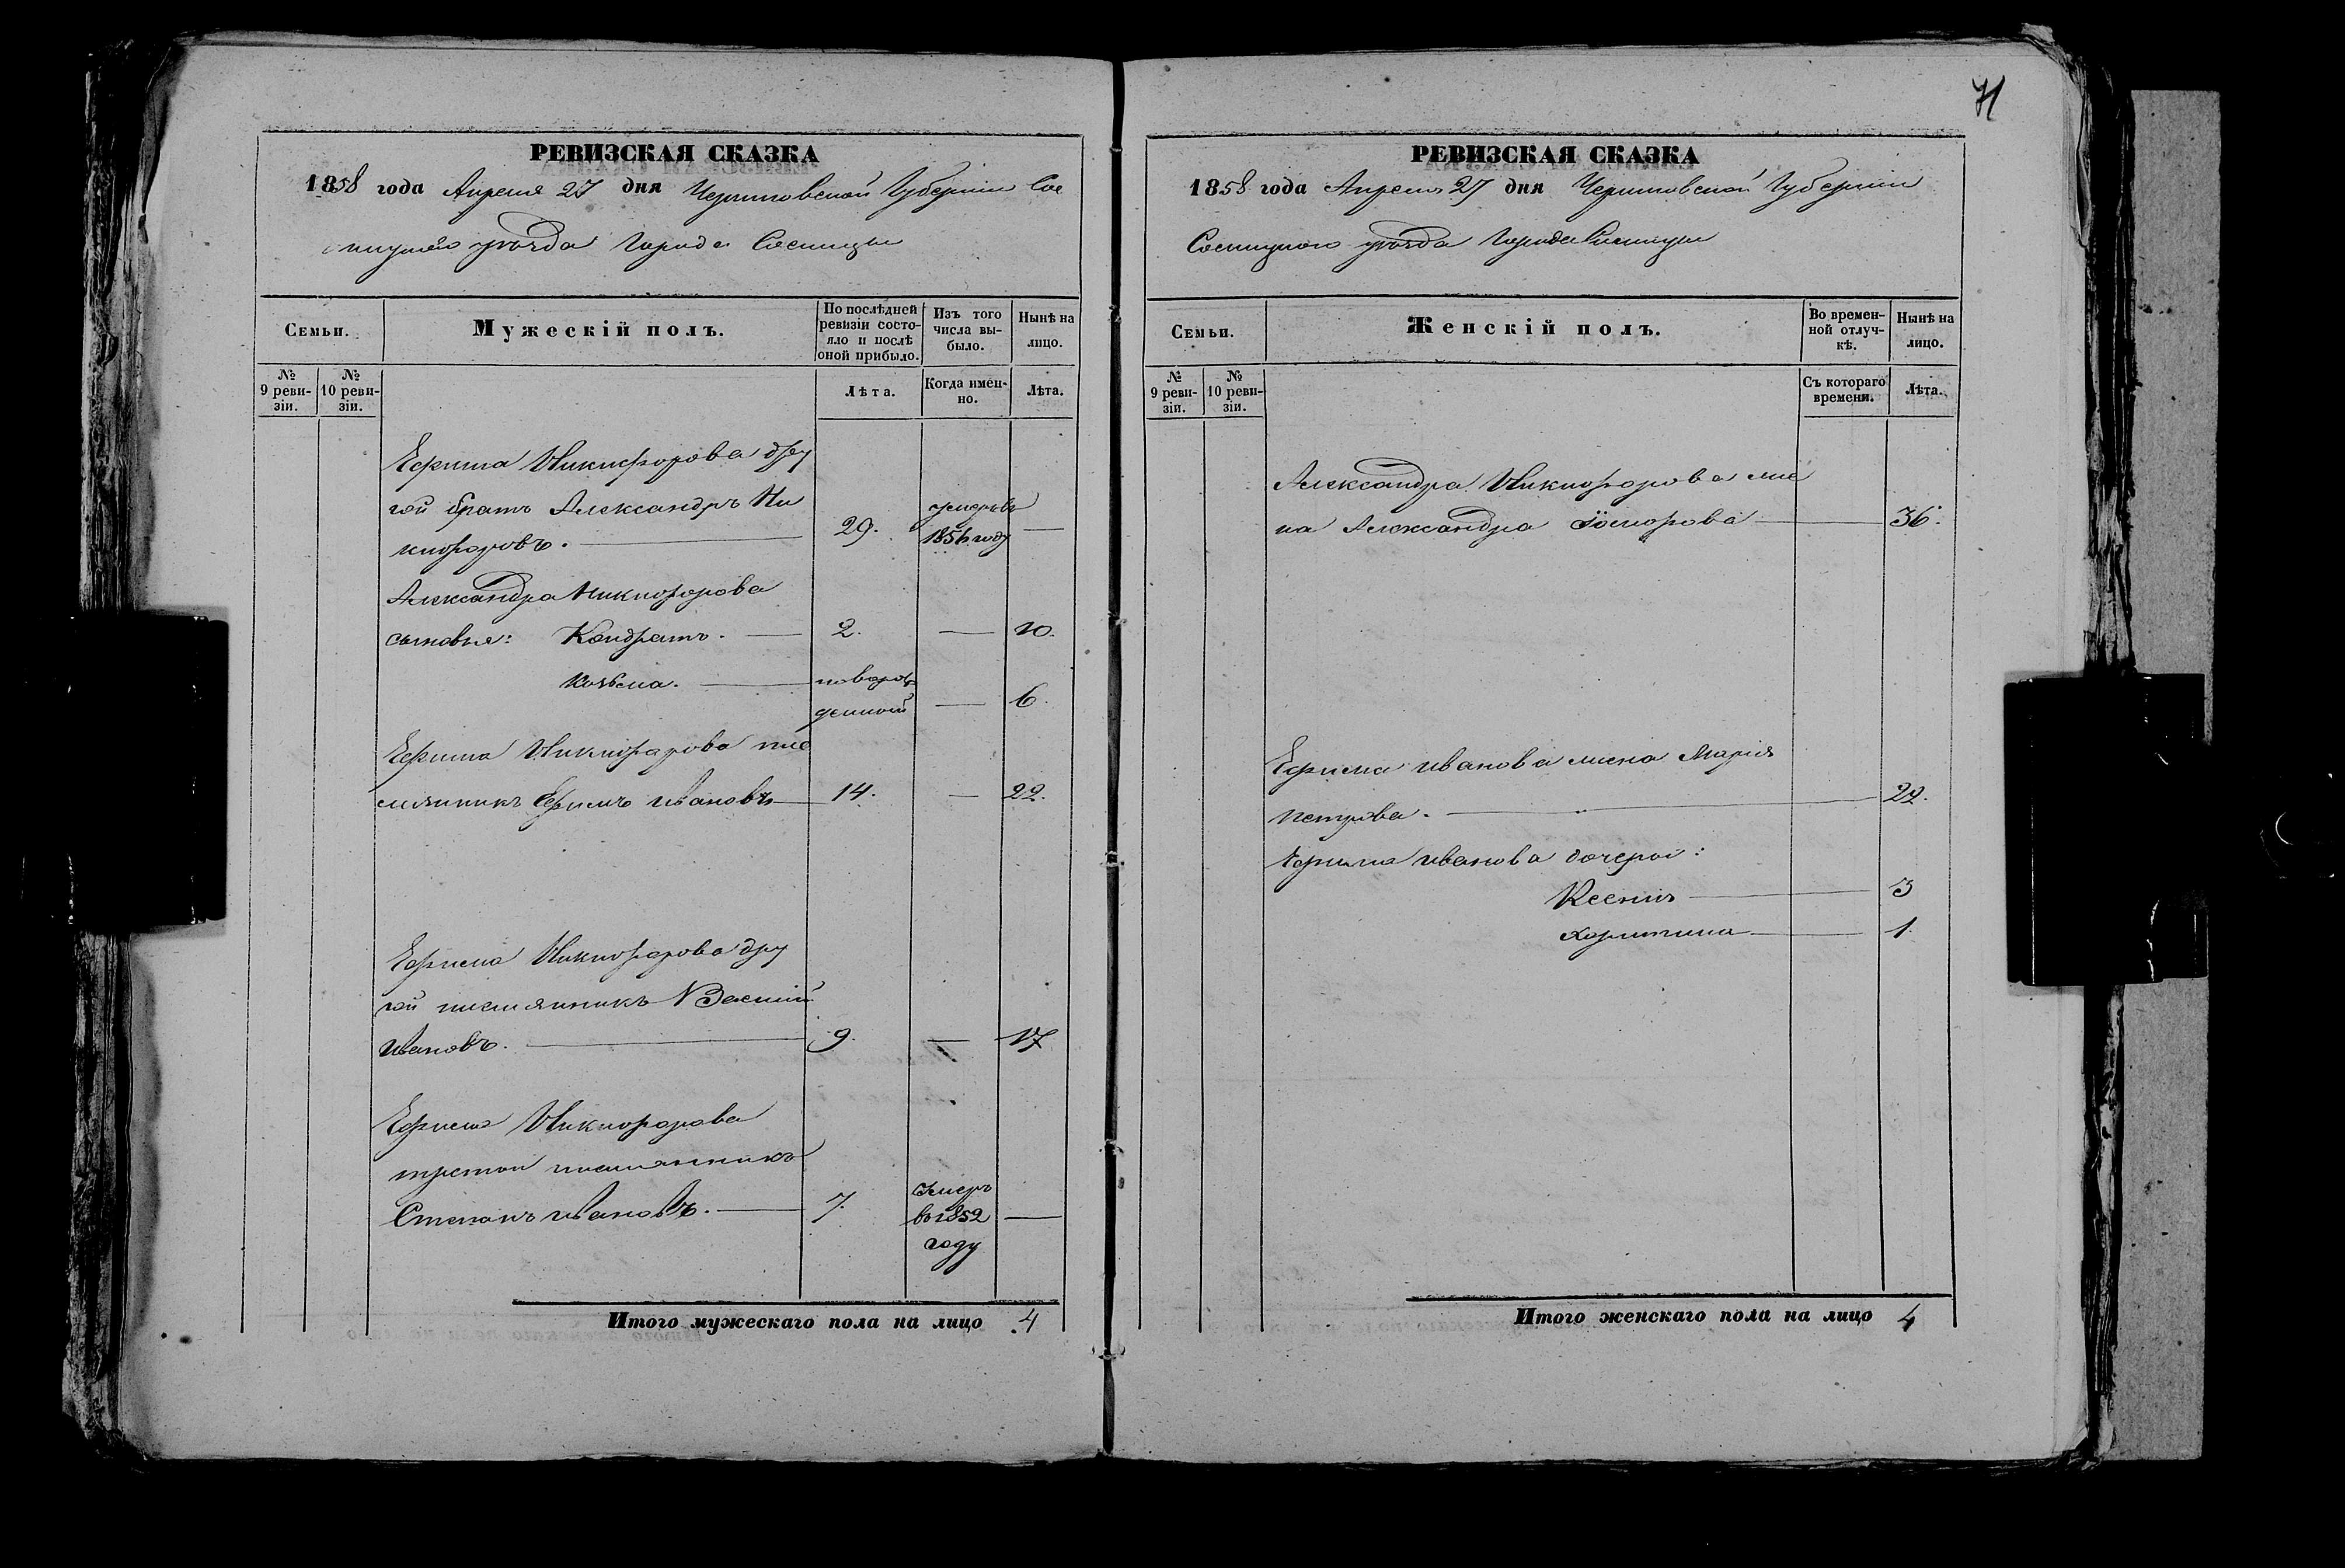 71
РЕВИЗСКАЯ СКАЗКА
1858 года Апреля 27 дня Черниговской Губернии Сос
ницкаго уѣзда Города Сосницы
Семьи.
Мужескій полъ.
По послѣдней ревизіи состояло и послѣ оной прибыло.
Изъ того числа выбыло.
Нынѣ на лицо.
№ 9 ревизіи.
№ 10 ревизіи.
Лѣта.
Когда именно.
Лѣта.
Ефима Никифорова дру
гой братъ Александръ Ни
кифоровъ. 29. умеръ въ 1856 году —
Александра Никифорова
сыновья: Кондратъ. 2. — 10.
Козьма. новорожденной — 6.
Ефима Никифорова пле
мянникъ Ефимъ Ивановъ 14. — 22.
Ефима Никифорова дру
гой племянникъ Василій
Ивановъ. 9. — 17
Ефима Никифорова
третой племянникъ
Степанъ Ивановъ. 7. Умеръ въ 1852 году —
Итого мужескаго пола на лицо 4
РЕВИЗСКАЯ СКАЗКА
1858 года Апреля 27 дня Черниговской Губерніи
Сосницкаго уѣзда Города Сосницы
Семьи.
Женскій полъ.
Во временной отлучкѣ.
Нынѣ на лицо.
№ 9 ревизіи.
№ 10 ревизіи.
Съ котораго времени.
Лѣта.
Александра Никифорова же
на Александра 36.
Ефима Иванова жена Марія
Петрова. 22.
Ефима Иванова дочери:
Ксенія 3
Харитина 1
Итого женскаго пола на лицо 4